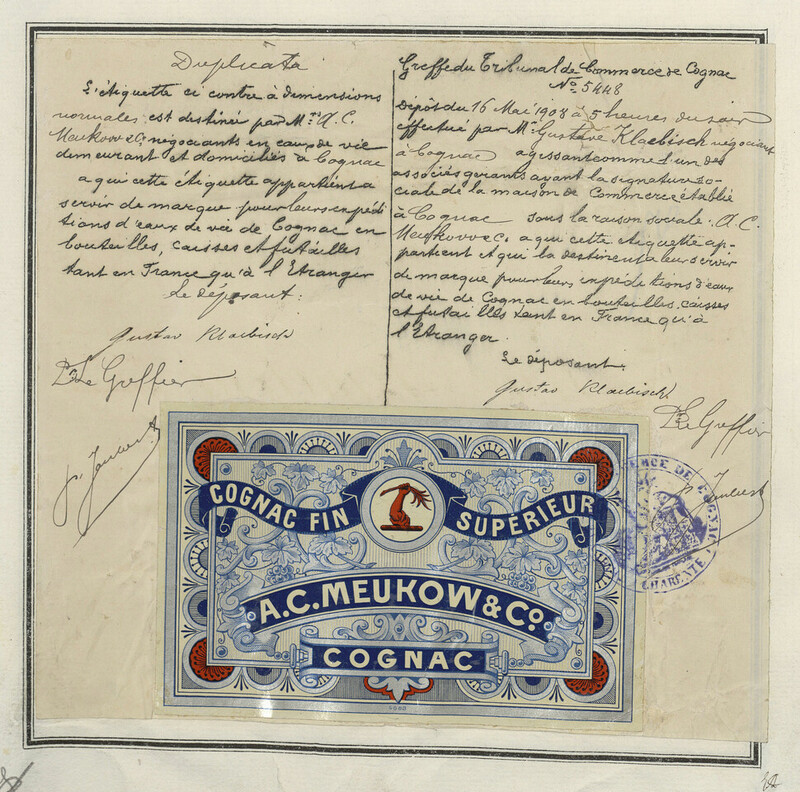 Duplicata
L'étiquette ci contre à dimensions
normales est destinée par Mrs A.C.
Meukow & Co négociants en eaux de vie
demeurant et domiciliés à Cognac
a qui cette étiquette appartient a
servir de marque pour leurs expédi
tions d'eaux de vie de Cognac en
bouteilles, caisses et futailles
tant en France qu'à l'Etranger
Le déposant:
Gustav Klaebisch
Le Greffier
Greffe du Tribunal de Commerce de Cognac
No 5448
Dépôt du 16 Mai 1908 à 5 heures du soir
effectué par Mr Gustave Klaebisch négociant
à Cognac agissant comme l'un des
associés gérants ayant la signature so-
ciale de la maison de Commerce établie
à Cognac sous la raison sociale A.C.
Meukow & Co a qui cette étiquette ap-
partient et qui la destinent a leur servir
de marque pour leurs expéditions d'eaux
de vie de Cognac en bouteilles, caisses
et futailles tant en France qu'à
l'Etranger.
Le déposant.
Gustav Klaebisch
Le Greffier
COGNAC FIN SUPÉRIEUR
A.C. MEUKOW & Co.
COGNAC
DE COGNAC
CHARENTE